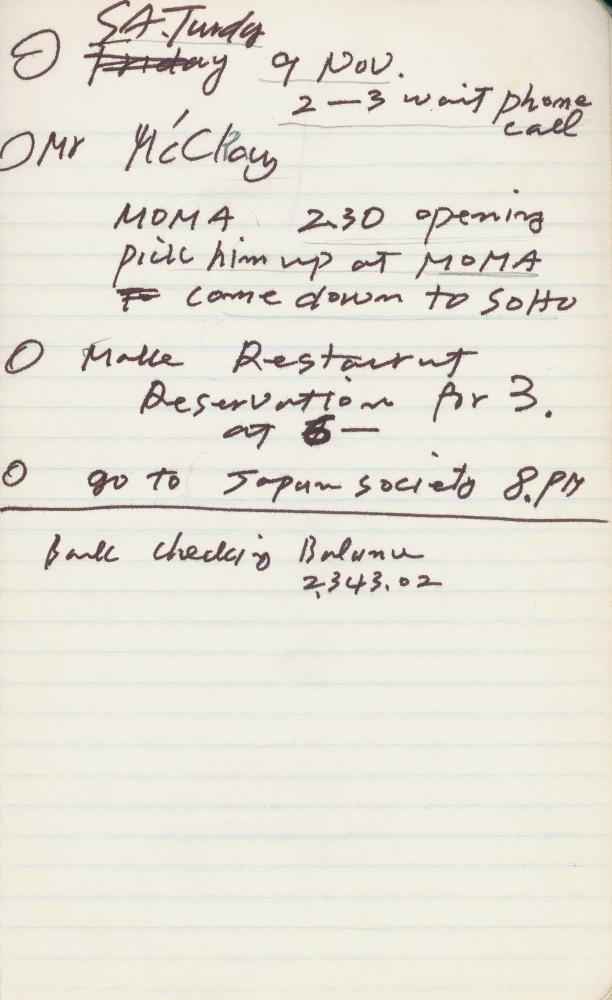 SA.Turdy
Friday 9 Nov.
2 - 3 wait phone
call
Mr McCloy
MOMA 2.30 opening
pick him up at MOMA
come down to SoHo
Make Restarunt
Reservation for 3.
at 6 —
go to Japan society 8.PM
Bank checking Balance
2,343.02